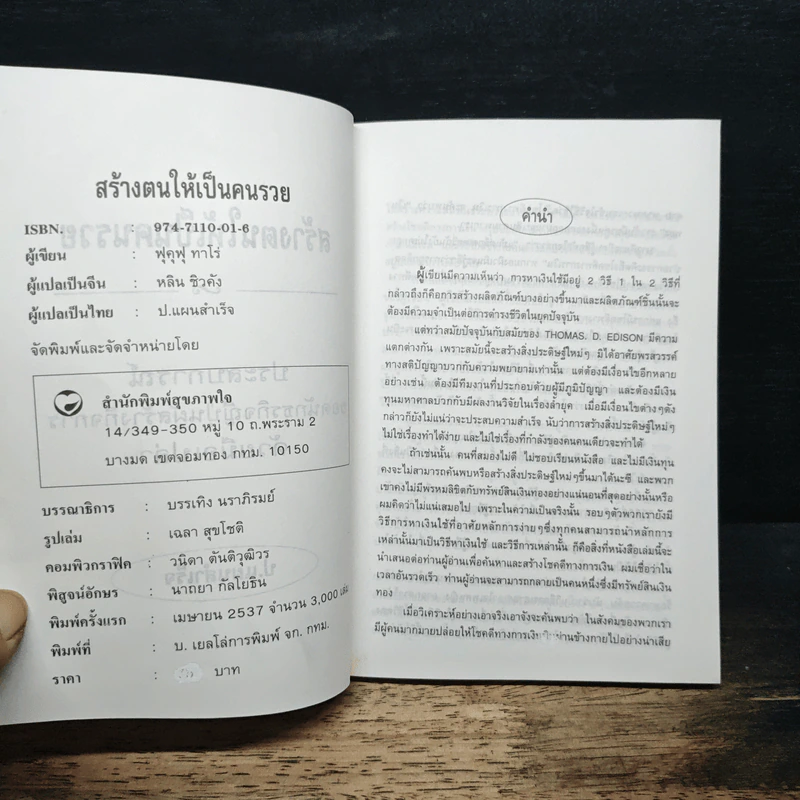 สร้างตนให้เป็นคนรวย
ISBN. : 974-7110-01-6
ผู้เขียน : ฟุคุฟุ ทาโร่
ผู้แปลเป็นจีน : หลิน ชิวคัง
ผู้แปลเป็นไทย : ป.แผนสำเร็จ
จัดพิมพ์และจัดจำหน่ายโดย
สำนักพิมพ์สุขภาพใจ
14/349-350 หมู่ 10 ถ.พระราม 2
บางมด เขตจอมทอง กทม. 10150
บรรณาธิการ : บรรเทิง นราภิรมย์
รูปเล่ม : เฉลา สุขโชติ
คอมพิวกราฟิค : วนิดา ตันติวุฒิวร
พิสูจน์อักษร : นาถยา กัลโยธิน
พิมพ์ครั้งแรก : เมษายน 2537 จำนวน 3,000 เล่ม
พิมพ์ที่ : บ. เยลโล่การพิมพ์ จก. กทม.
ราคา : บาท
คำนำ
ผู้เขียนมีความเห็นว่า การหาเงินใช้มีอยู่ 2 วิธี 1 ใน 2 วิธีที่
กล่าวถึงก็คือการสร้างผลิตภัณฑ์บางอย่างขึ้นมาและผลิตภัณฑ์ชิ้นนั้นจะ
ต้องมีความจำเป็นต่อการดำรงชีวิตในยุคปัจจุบัน
แต่ทว่าสมัยปัจจุบันกับสมัยของ THOMAS. D. EDISON มีความ
แตกต่างกัน เพราะสมัยนี้จะสร้างสิ่งประดิษฐ์ใหม่ๆ มิได้อาศัยพรสวรรค์
ทางสติปัญญาบวกกับความพยายามเท่านั้น แต่ต้องมีเงื่อนไขอีกหลาย
อย่างเช่น ต้องมีทีมงานที่ประกอบด้วยผู้มีภูมิปัญญา และต้องมีเงิน
ทุนมหาศาลบวกกับมีผลงานวิจัยในเรื่องล้ำยุค เมื่อมีเงื่อนไขต่างๆดัง
กล่าวก็ยังไม่แน่ว่าจะประสบความสำเร็จ นับว่าการสร้างสิ่งประดิษฐ์ใหม่ๆ
ไม่ใช่เรื่องทำได้ง่าย และไม่ใช่เรื่องที่กำลังของคนคนเดียวจะทำได้
ถ้าเช่นนั้น คนที่สมองไม่ดี ไม่ชอบเรียนหนังสือ และไม่มีเงินทุน
คงจะไม่สามารถค้นพบหรือสร้างสิ่งประดิษฐ์ใหม่ๆขึ้นมาได้นะซี และพวก
เขาคงไม่มีพรหมลิขิตกับทรัพย์สินเงินทองอย่างแน่นอนที่สุดอย่างนั้นหรือ
ผมคิดว่าไม่แน่เสมอไป เพราะในความเป็นจริงนั้น รอบๆตัวพวกเรายังมี
วิธีการหาเงินใช้ที่อาศัยหลักการง่ายๆซึ่งทุกคนสามารถนำหลักการ
เหล่านั้นมาเป็นวิธีหาเงินใช้ และวิธีการเหล่านั้น ก็คือสิ่งที่หนังสือเล่มนี้จะ
นำเสนอต่อท่านผู้อ่านเพื่อค้นหาและสร้างโชคดีทางการเงิน ผมเชื่อว่าใน
เวลาอันรวดเร็ว ท่านผู้อ่านจะสามารถกลายเป็นคนหนึ่งซึ่งมีทรัพย์สินเงิน
ทอง
เมื่อวิเคราะห์อย่างเอาจริงเอาจังจะค้นพบว่า ในสังคมของพวกเรา
มีผู้คนมากมายปล่อยให้โชคดีทางการเงินผ่านข้างกายไปอย่างน่าเสีย